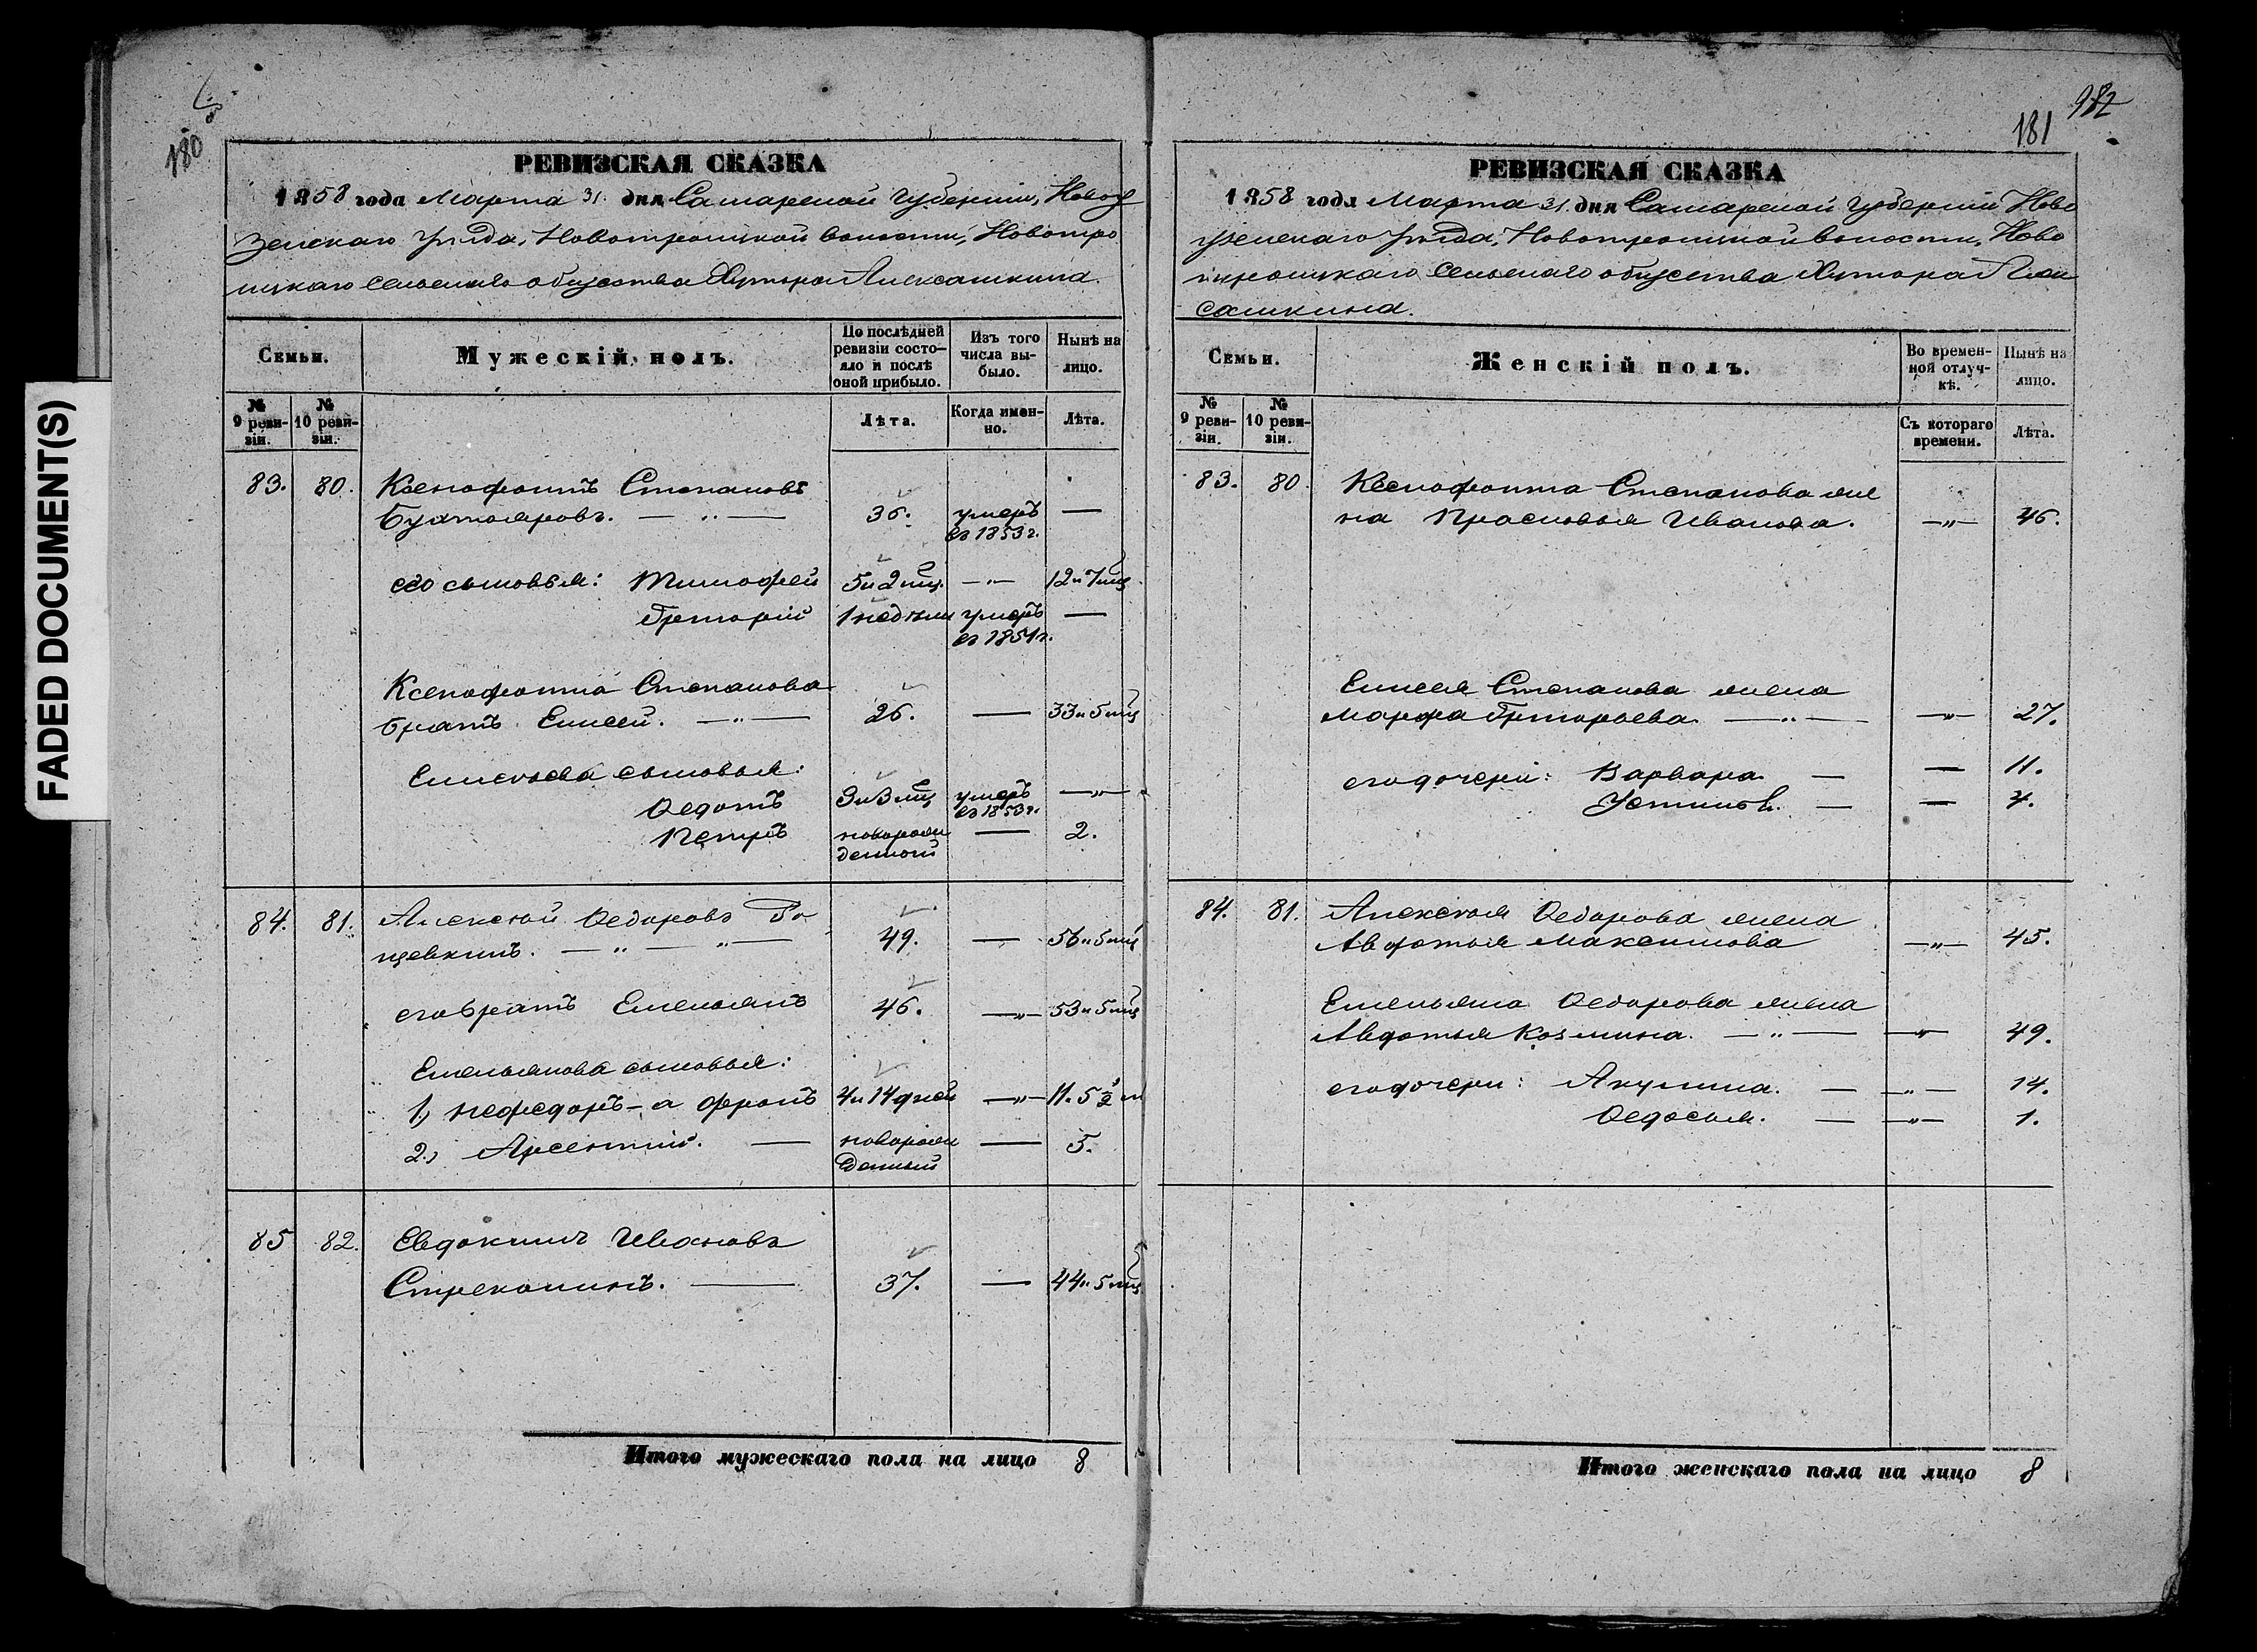 FADED DOCUMENT(S)
180
РЕВИЗСКАЯ СКАЗКА
1858 года Марта 31. дня Самарской Губерніи, Новоу
зенскаго уѣзда, Новотроицкой волости, Новотро
ицкаго сельскаго общества Хутора Алексашкина.
Семьи.
Мужескій полъ.
По послѣдней ревизіи состояло и послѣ оной прибыло.
Изъ того числа выбыло.
Нынѣ на лицо.
№ 9 ревизіи.
№ 10 ревизіи.
Лѣта.
Когда именно.
Лѣта.
83. 80. Ксенофонтъ Степановъ
— „ — 36. умеръ —
въ 1853 г.
его сыновья: Тимофей 5 и 2 мц. —„— 12 и 7 мц
Григорій 1 недѣли умеръ —
въ 1851 г.
Ксенофонта Степанова
братъ Елисей. —„— 26. — 33 и 5 мц
Елисѣева сыновья:
Ѳедотъ 3 и 3 мц умеръ —„—
въ 1850 г.
Петръ новорож — 2.
денный
84. 81. Алексѣй Ѳедоровъ Го
щевкинъ. — „ — „ — 49. — 56 и 5 мц
его братъ Емельянъ 46. —„— 53 и 5 мц
Емельянова сыновья:
1, Нефедоръ - а Фролъ 4 и 14 дней —„— 11. 5 ½ м
2., Арсентій. — новорож — 5.
денный
85 82. Евдокимъ Ивановъ
Стрекалинъ. — 37. — 44 и 5 мц
Итого мужескаго пола на лицо 8
181
982
РЕВИЗСКАЯ СКАЗКА
1858 года Марта 31. дня Самарской Губерніи Ново
узенскаго уѣзда, Новотроицкой волости, Ново
троицкаго сельскаго общества Хутора Алек
сашкина.
Семьи.
Женскій полъ.
Во временной отлучкѣ.
Нынѣ на лицо.
№ 9 ревизіи.
№ 10 ревизіи.
Съ котораго времени.
Лѣта.
83. 80. Ксенофонта Степанова же
на Прасковья Иванова. —„— 46.
Елисея Степанова жена
Марфа Григорьева. —„— —„— 27.
его дочери: Варвара — — 11.
— — 7.
84. 81. Алексѣя Ѳедорова жена
Авдотья Максимова —„— 45.
Емельяна Ѳедорова жена
Авдотья Козмина. —„— —„— 49.
его дочери: Акулина. — —„— 14.
Ѳедосья. — —„— 1.
Итого женскаго пола на лицо 8